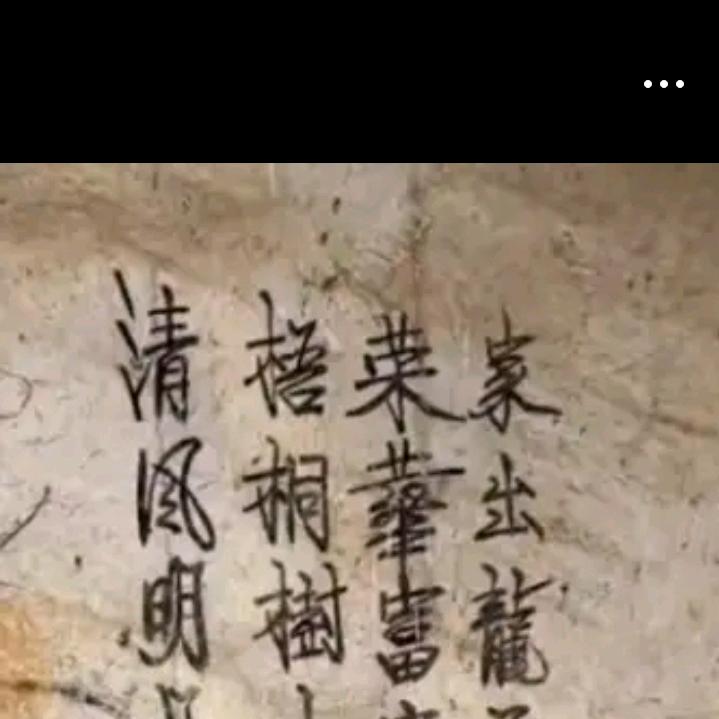 家出龍
荣華富
梧桐樹
清风明